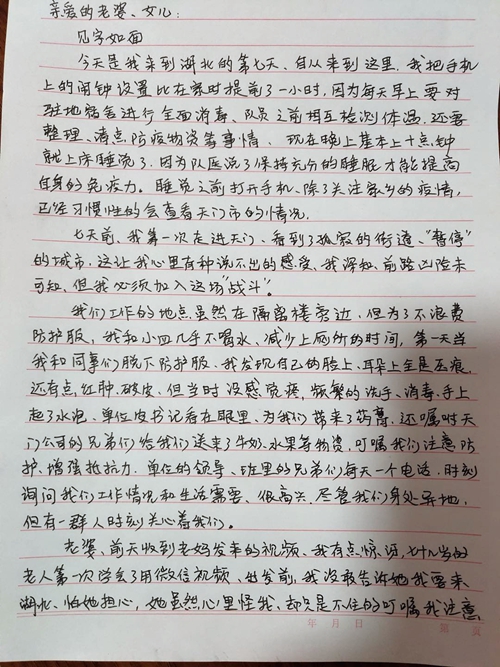 亲爱的老婆、女儿：
见字如面
今天是我来到湖北的第七天、自从来到这里，我把手机
上的闹钟设置比在家时提前了一小时，因为每天早上要对
驻地宿舍进行全面消毒、队员之前相互检测体温，还要
整理、清点防疫物资等事情，现在晚上基本上十点钟
就上床睡觉了，因为队医说了保持充分的睡眠才能提高
自身的免疫力。睡觉之前打开手机、除了关注家乡的疫情，
已经习惯性的会查看天门市的情况。
七天前、我第一次走进天门、看到了孤寂的街道、“暂停”
的城市，这让我心里有种说不出的感受、我深知前路凶险未
可知，但我必须加入这场“战斗”。
我们工作的地点虽然在隔离楼旁边，但为了不浪费
防护服，我和小四几乎不喝水、减少上厕所的时间，第一天当
我和同事们脱下防护服、我发现自己的脸上、耳朵上全是压痕，
还有点红肿、破皮、但当时没感觉疼，频繁的洗手、消毒、手上
起了水泡、单位皮书记看在眼里、为我们带来了药膏、还嘱咐天
门公司的兄弟们给我们送来了牛奶、水果等物资，叮嘱我们注意防
护、增强抵抗力、单位的领导、班里的兄弟们每天一个电话，时刻
询问我们工作情况和生活需要、很高兴、尽管我们身处异地，
但有一群人时刻关心着我们。
老婆、前天收到老妈发来的视频、我有点惊讶，七十几岁的
老人第一次学会了用微信视频、出发前，我没敢告诉她我要来
湖北、怕她担心，她虽然心里怪我、却只是不住的叮嘱我注意
年 月 日 第 页